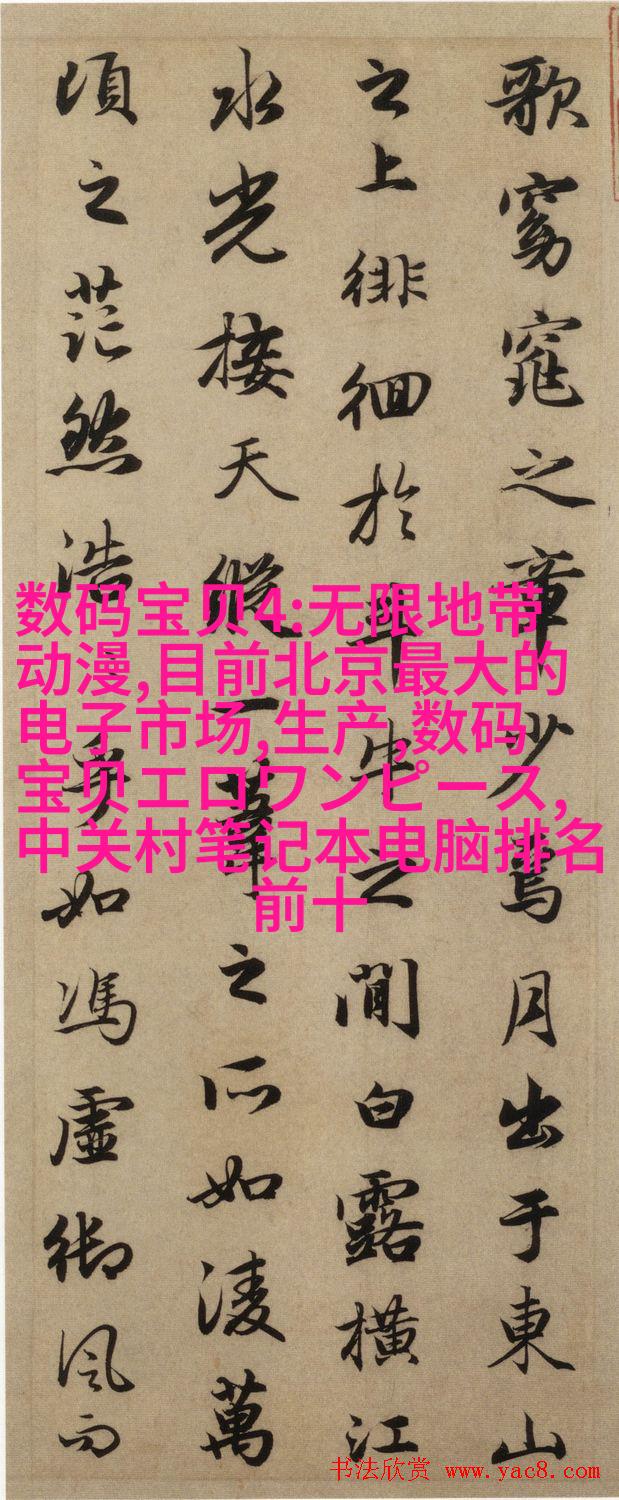 歌窈窕之章少焉月出于東山
之上徘徊於斗牛之間白露橫江
水光接天縱一葦之所如淩萬
頃之茫然浩乎如馮虛御風而
数码宝贝4:无限地带
动漫,目前北京最大的
电子市场,生产,数码
宝贝エロワンピース,
中关村笔记本电脑排名
前十
书法欣赏 www.yac8.com